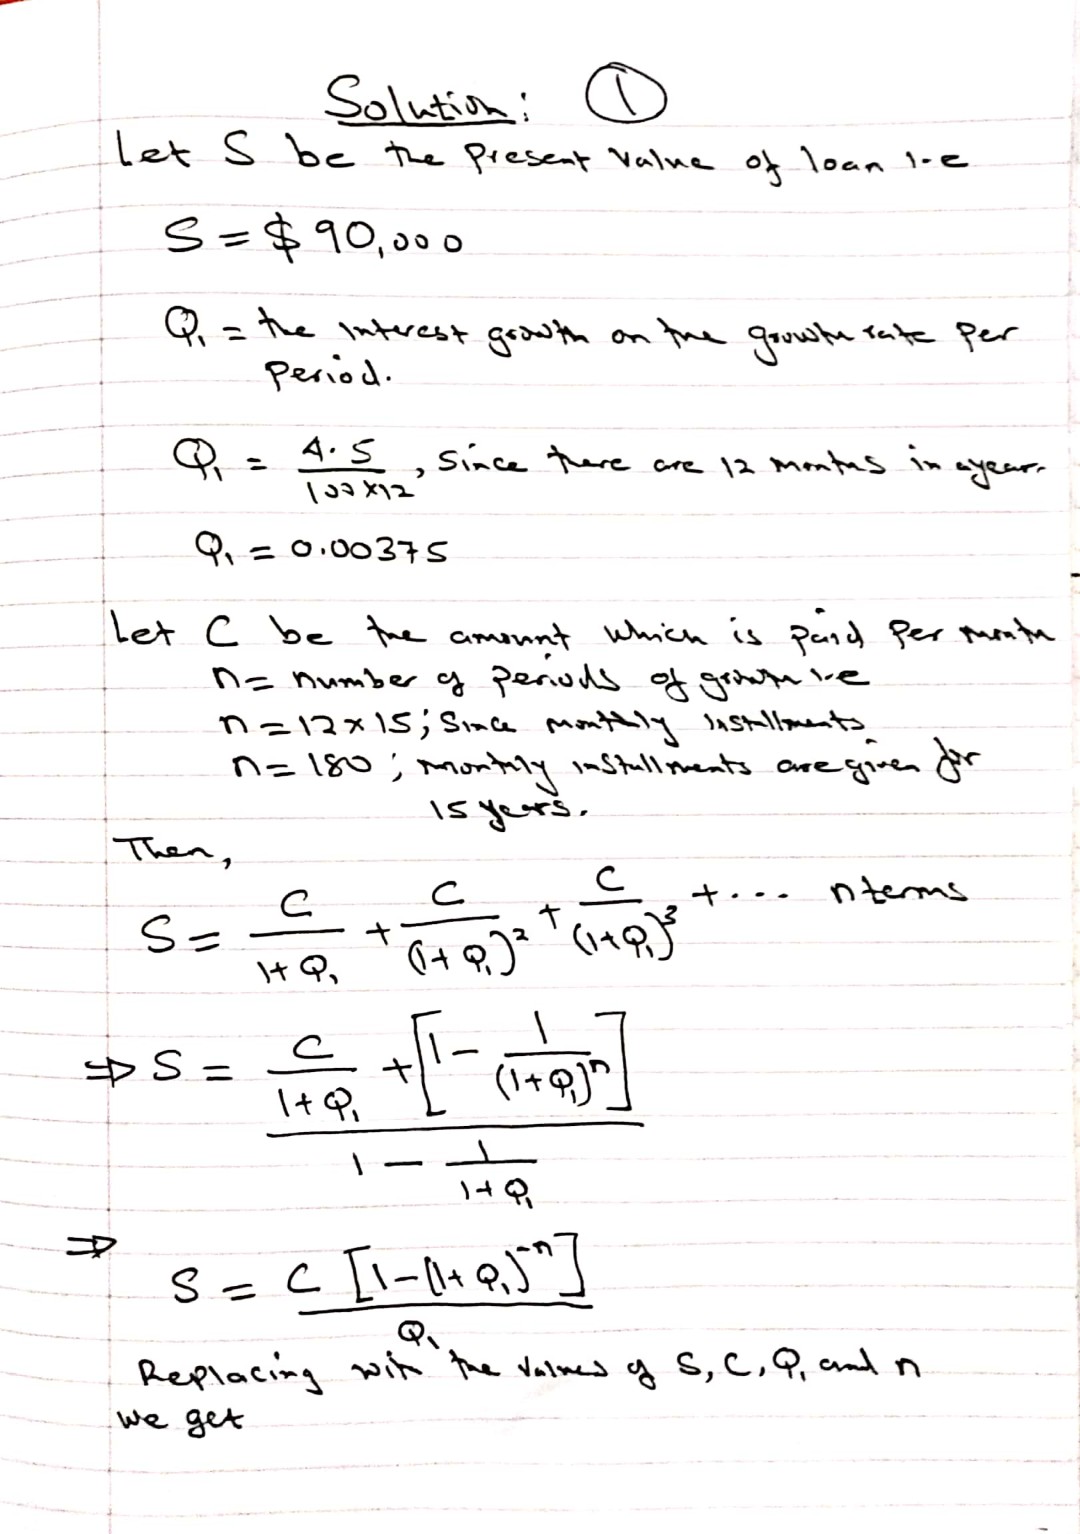 Solution: ①
Let S be the Present Value of loan i-e
S = $90,000
Q₁ = the interest growth on the growth rate per
Period.
Q₁ = 4.5 / 100×12 , Since there are 12 months in a year.
Q₁ = 0.00375
Let C be the amount which is paid Per month
n = number of periods of growth i-e
n = 12×15; Since monthly installments
n = 180 ; monthly installments are given for
15 years.
Then,
S = C / 1+Q₁ + C / (1+Q₁)² + C / (1+Q₁)³ + ... n terms
⇒ S = C / 1+Q₁ + [1 - 1 / (1+Q₁)ⁿ] / 1 - 1 / 1+Q₁
⇒
S = C [1-(1+Q₁)⁻ⁿ] / Q₁
Replacing with the values of S, C, Q₁ and n
we get